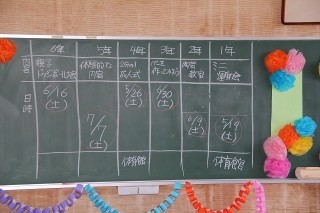 6年 5年 4年 3年 2年 1年
内容
親子
体験的な
内容
2分の1
成人式
陶芸
教室
ミニ
運動会
日時
6/16
(土)
7/7
(土)
5/26
(土)
6/30
(土)
6/9
(土)
5/19
(土)
体育館 体育館